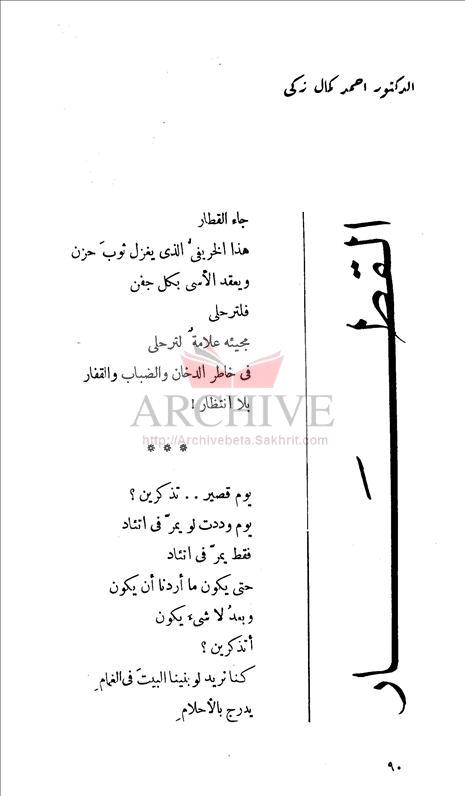 الدكتور احمد كمال زكى
القطار
جاء القطار
هذا الخريفىُّ الذى يغزل ثوبَ حزن
ويعقد الأسى بكل جفن
فلترحلى
مجيئه علامةٌ لترحلى
فى خاطر الدخان والضباب والقفار
بلا انتظار !
ARCHIVE
http://Archivebeta.Sakhrit.com
* * *
يوم قصير . . تذكرين ؟
يوم وددت لو يمرّ فى اتئاد
فقط يمرّ فى اتئاد
حتى يكون ما أردنا أن يكون
وبعدُ لا شىء يكون
أتذكرين ؟
كنا نريد لو بنينا البيتَ فى الغمامِ
يدرج بالأحلامِ
٩٠